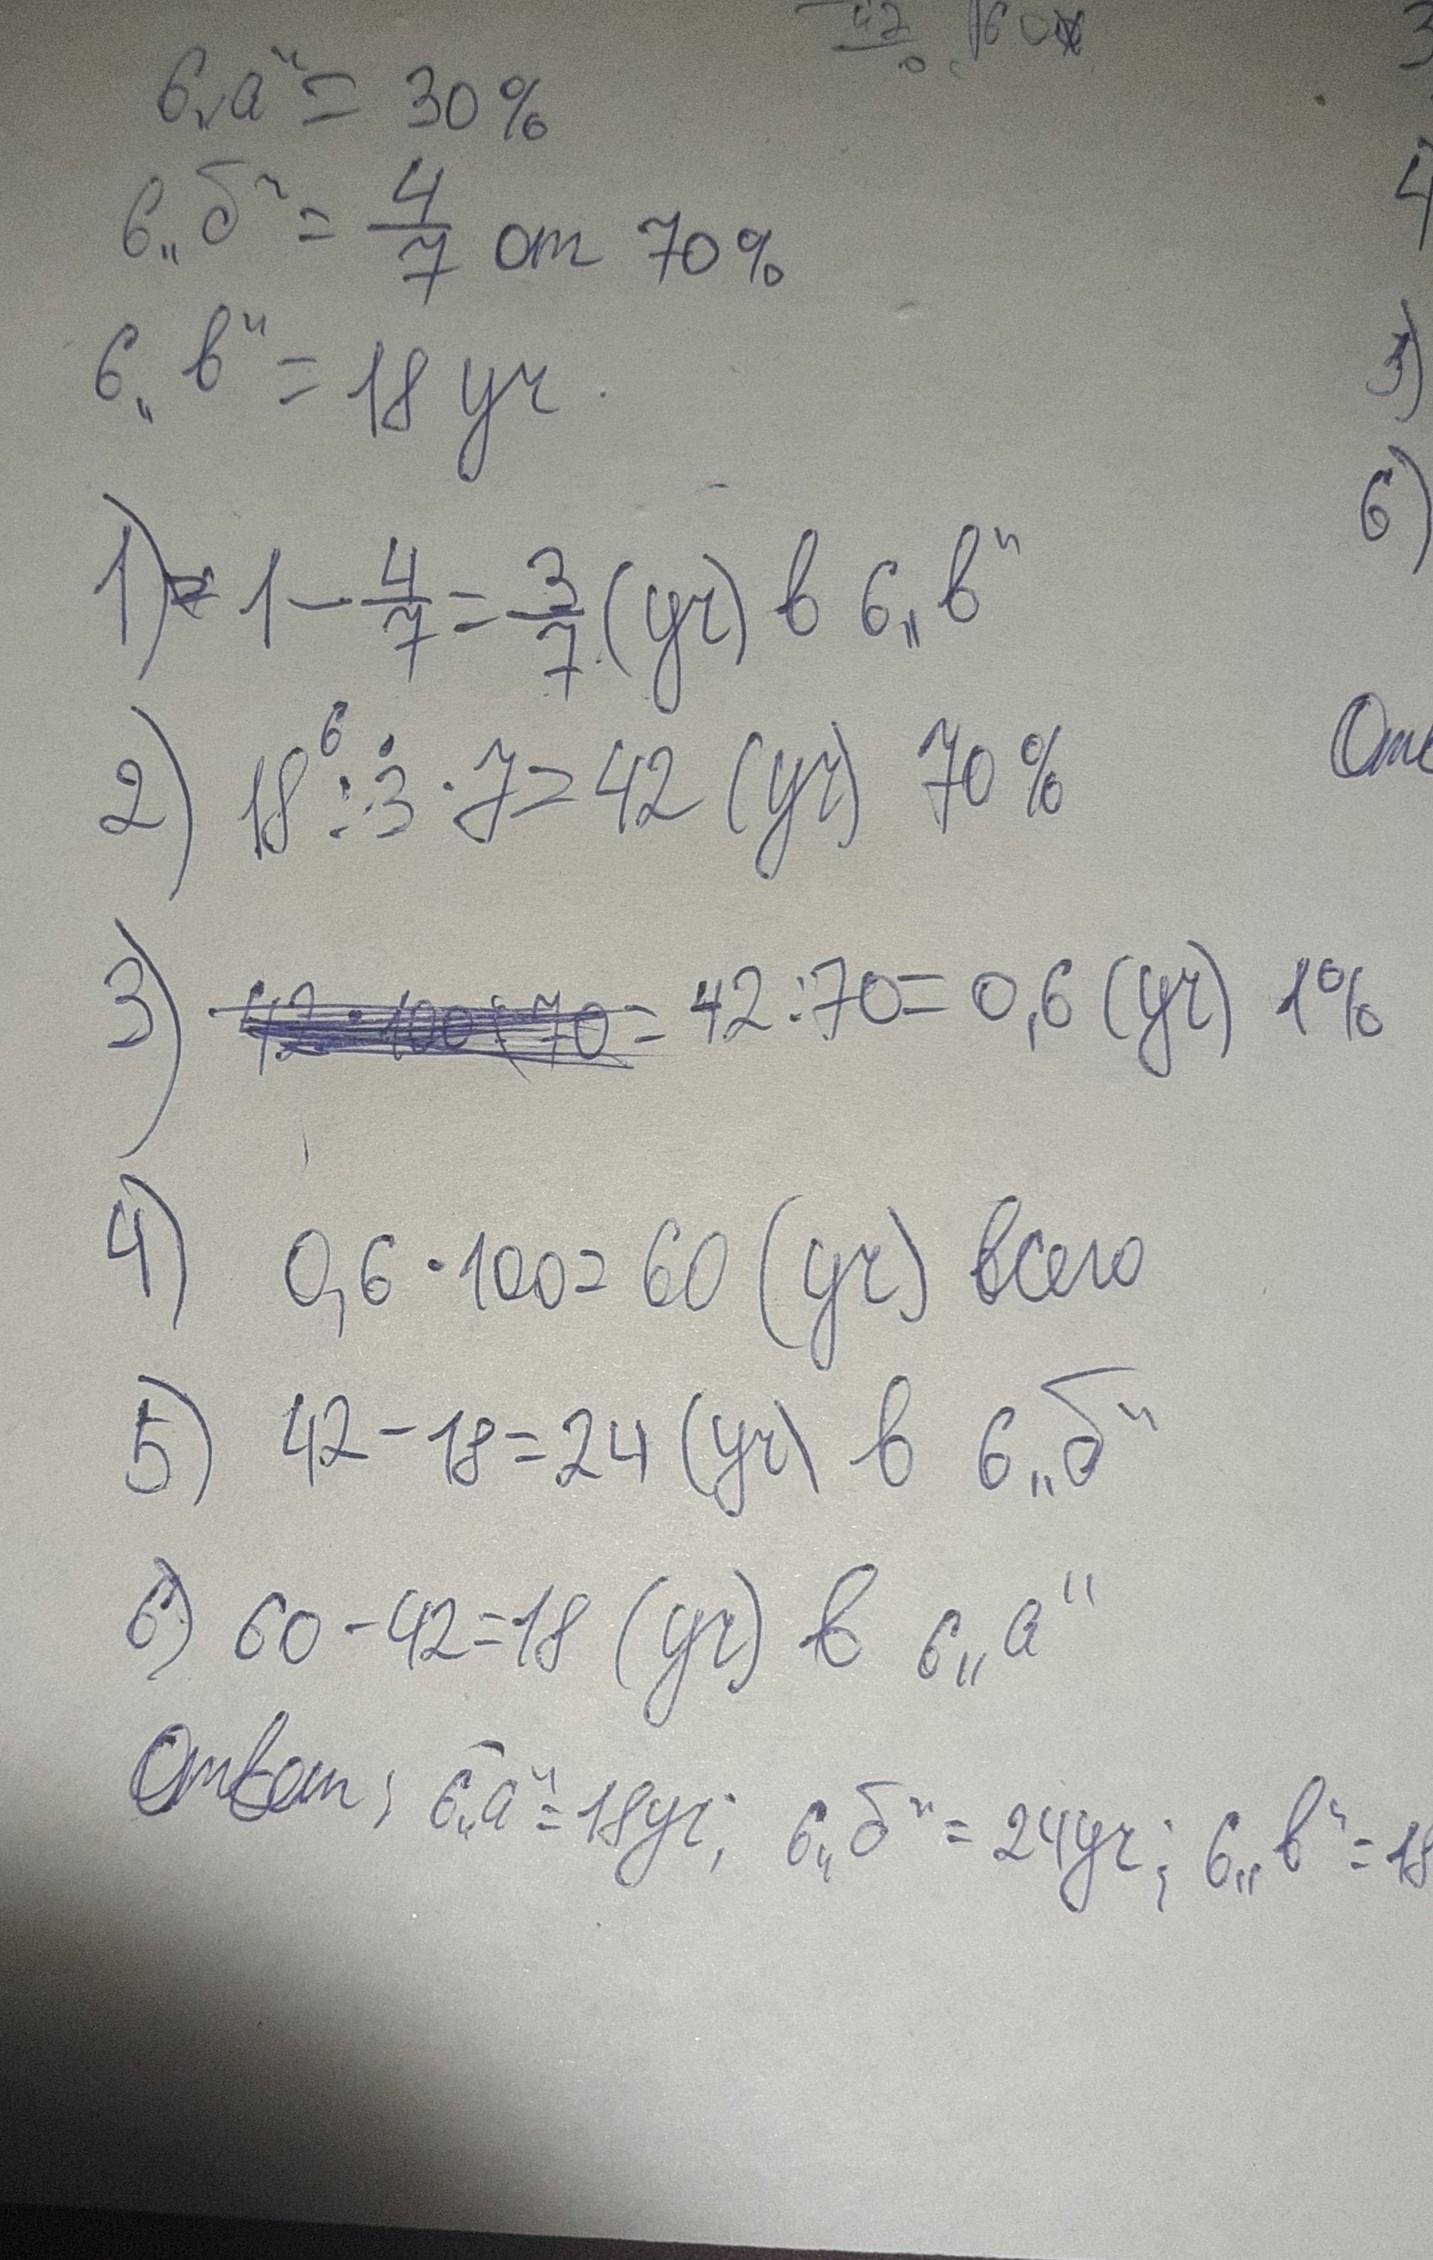 6„а“ = 30%
6„б“ = 4/7 от 70%
6„в“ = 18 уч.
1) 1 - 4/7 = 3/7 (уч) в 6„в“
2) 18 6 : 3 · 7 = 42 (уч) 70%
3) 42 · 100 : 70 = 42 : 70 = 0,6 (уч) 1%
4) 0,6 · 100 = 60 (уч) всего
5) 42 - 18 = 24 (уч) в 6„б“
6) 60 - 42 = 18 (уч) в 6„а“
Ответ; 6„а“ = 18 уч; 6„б“ = 24 уч; 6„в“ = 18
42
0
60
3
4
5)
6)
Отв